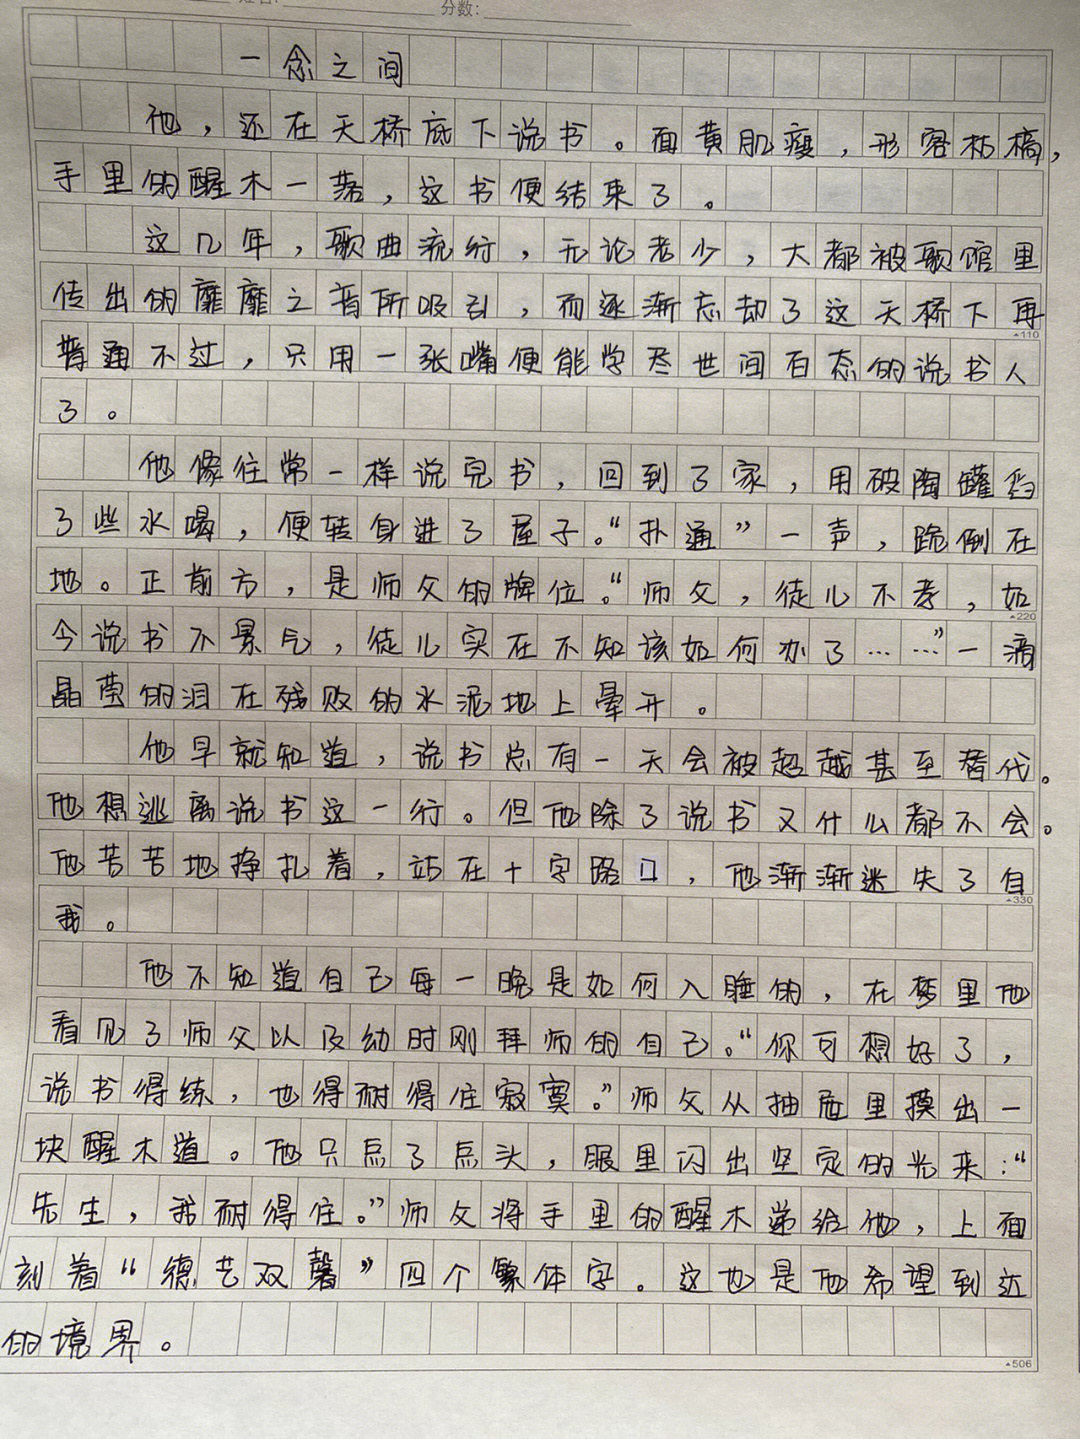 分数:
一念之间
他，还在天桥底下说书。面黄肌瘦，形容枯槁，
手里的醒木一落，这书便结束了。
这几年，歌曲流行，无论老少，大都被歌馆里
传出的靡靡之音所吸引，而逐渐忘却了这天桥下再
普通不过，只用一张嘴便能学尽世间百态的说书人
了。
他像往常一样说完书，回到了家，用破陶罐舀
了些水喝，便转身进了屋子。“扑通”一声，跪倒在
地。正前方，是师父的牌位。“师父，徒儿不孝，如
今说书不景气，徒儿实在不知该如何办了……”一滴
晶莹的泪在残败的水泥地上晕开。
他早就知道，说书总有一天会被超越甚至替代。
他想逃离说书这一行。但他除了说书又什么都不会。
他苦苦地挣扎着，站在十字路口，他渐渐迷失了自
我。
他不知道自己每一晚是如何入睡的，在梦里他
看见了师父以及幼时刚拜师的自己。“你可想好了，
说书得练，也得耐得住寂寞。”师父从抽屉里摸出一
块醒木道。他只点了点头，眼里闪出坚定的光来：“
先生，我耐得住。”师父将手里的醒木递给他，上面
刻着“德艺双馨”四个繁体字。这也是他希望到达
的境界。
▲110
▲220
▲330
▲506